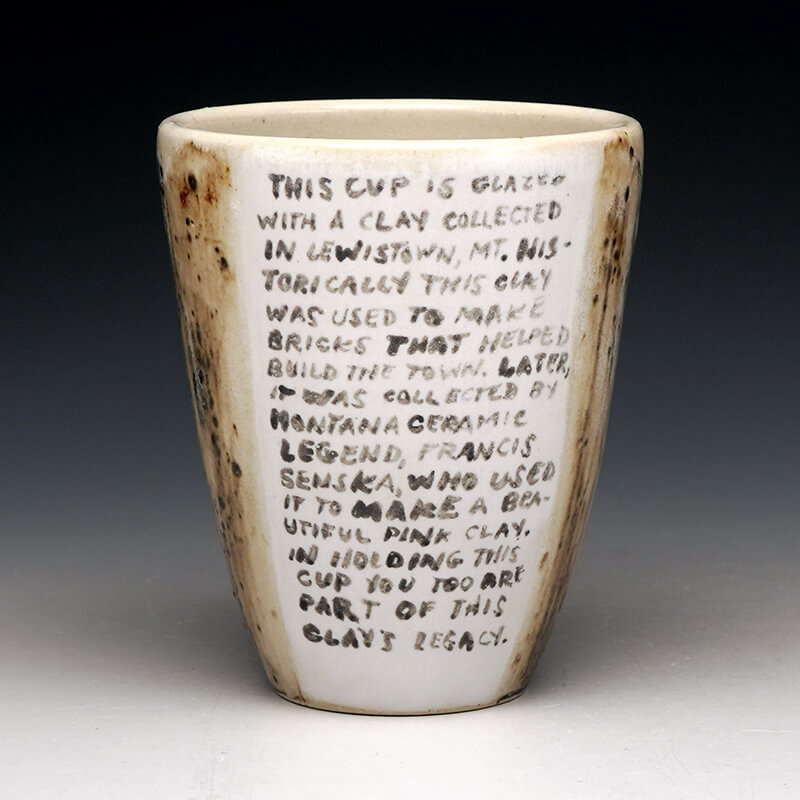 THIS CUP IS GLAZED
WITH A CLAY COLLECTED
IN LEWISTOWN, MT. HIS-
TORICALLY THIS CLAY
WAS USED TO MAKE
BRICKS THAT HELPED
BUILD THE TOWN. LATER,
IT WAS COLLECTED BY
MONTANA CERAMIC
LEGEND, FRANCIS
SENSKA, WHO USED
IT TO MAKE A BEA-
UTIFUL PINK CLAY.
IN HOLDING THIS
CUP YOU TOO ARE
PART OF THIS
CLAY'S LEGACY.